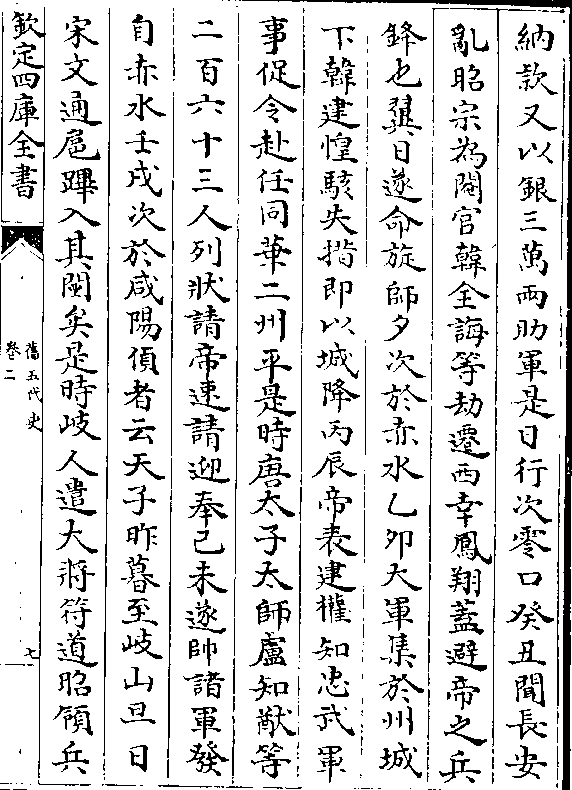 納款又以銀三萬兩助軍是日行次零口癸丑聞長安
亂昭宗為閹官韓全誨等劫遷西幸鳳翔蓋避帝之兵
鋒也翼日遂命旋師夕次於赤水乙卯大軍集於州城
下韓建惶駭失措即以城降丙辰帝表建權知忠武軍
事促令赴任同華二州平是時唐太子太師盧知猷等
二百六十三人列狀請帝速請迎奉己未遂帥諸軍發
自赤水壬戌次於咸陽偵者云天子昨暮至岐山旦日
宋文通扈蹕入其闉矣是時岐人遣大將符道昭領兵
欽定四庫全書
舊五代史
卷二
七